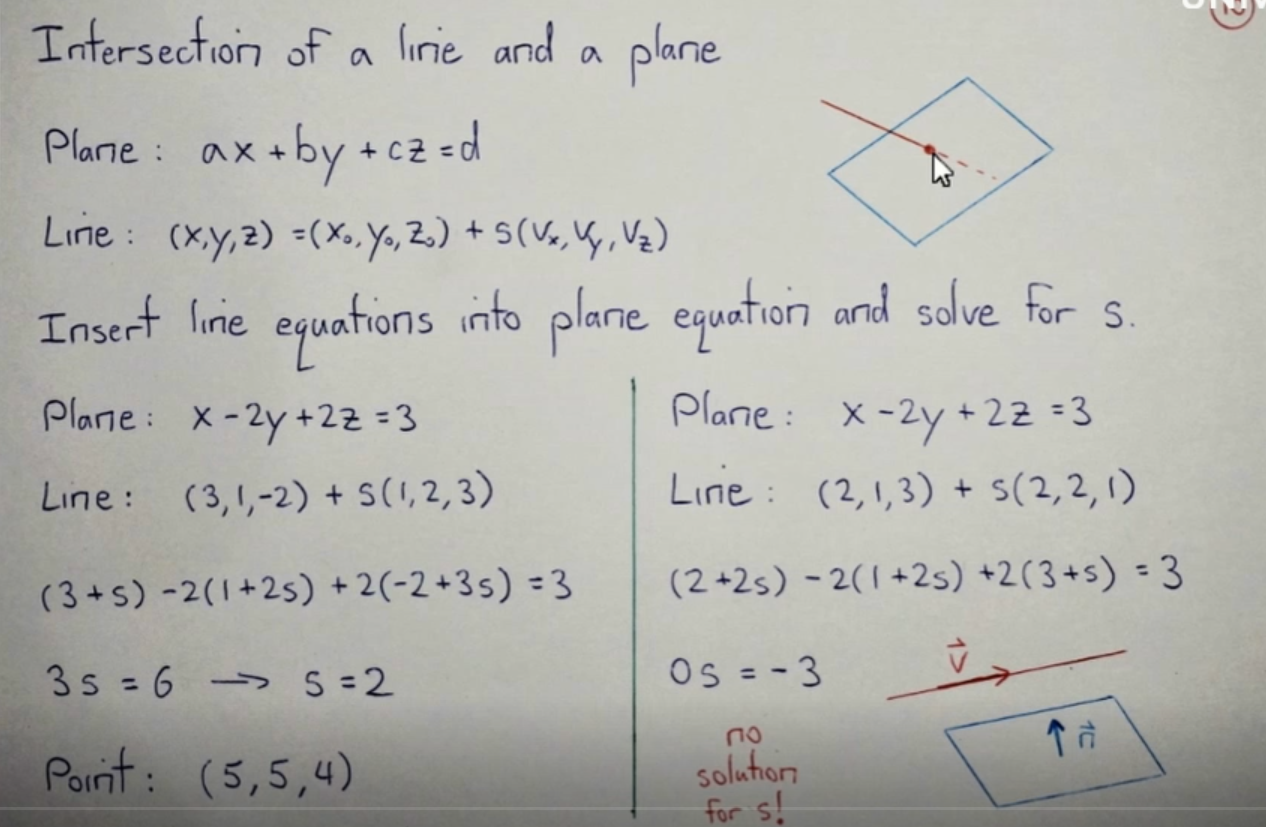 Intersection of a line and a plane
Plane : ax + by + cz = d
Line : (x,y,z) = (x₀, y₀, z₀) + s(vₓ, v_y, v_z)
Insert line equations into plane equation and solve for s.
Plane : x - 2y + 2z = 3
Line : (3,1,-2) + s(1,2,3)
(3+s) - 2(1+2s) + 2(-2+3s) = 3
3s = 6 → s = 2
Point : (5,5,4)
Plane : x - 2y + 2z = 3
Line : (2,1,3) + s(2,2,1)
(2+2s) - 2(1+2s) + 2(3+s) = 3
0s = -3
v⃗
n⃗
no
solution
for s!